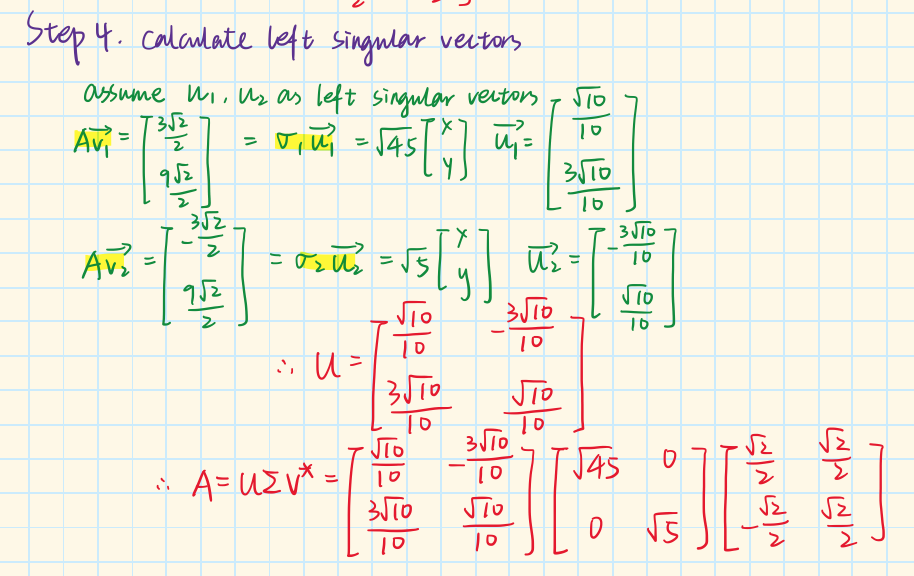 Step 4. Calculate left singular vectors
assume u₁, u₂ as left singular vectors
$A\vec{v_1} = \begin{bmatrix} \frac{3\sqrt{2}}{2} \\ \frac{9\sqrt{2}}{2} \end{bmatrix} = \sigma_1 \vec{u_1} = \sqrt{45} \begin{bmatrix} x \\ y \end{bmatrix} \quad \vec{u_1} = \begin{bmatrix} \frac{\sqrt{10}}{10} \\ \frac{3\sqrt{10}}{10} \end{bmatrix}$
$A\vec{v_2} = \begin{bmatrix} -\frac{3\sqrt{2}}{2} \\ \frac{9\sqrt{2}}{2} \end{bmatrix} = \sigma_2 \vec{u_2} = \sqrt{5} \begin{bmatrix} x \\ y \end{bmatrix} \quad \vec{u_2} = \begin{bmatrix} -\frac{3\sqrt{10}}{10} \\ \frac{\sqrt{10}}{10} \end{bmatrix}$
$\therefore U = \begin{bmatrix} \frac{\sqrt{10}}{10} & -\frac{3\sqrt{10}}{10} \\ \frac{3\sqrt{10}}{10} & \frac{\sqrt{10}}{10} \end{bmatrix}$
$\therefore A = U \Sigma V^* = \begin{bmatrix} \frac{\sqrt{10}}{10} & -\frac{3\sqrt{10}}{10} \\ \frac{3\sqrt{10}}{10} & \frac{\sqrt{10}}{10} \end{bmatrix} \begin{bmatrix} \sqrt{45} & 0 \\ 0 & \sqrt{5} \end{bmatrix} \begin{bmatrix} \frac{\sqrt{2}}{2} & \frac{\sqrt{2}}{2} \\ -\frac{\sqrt{2}}{2} & \frac{\sqrt{2}}{2} \end{bmatrix}$